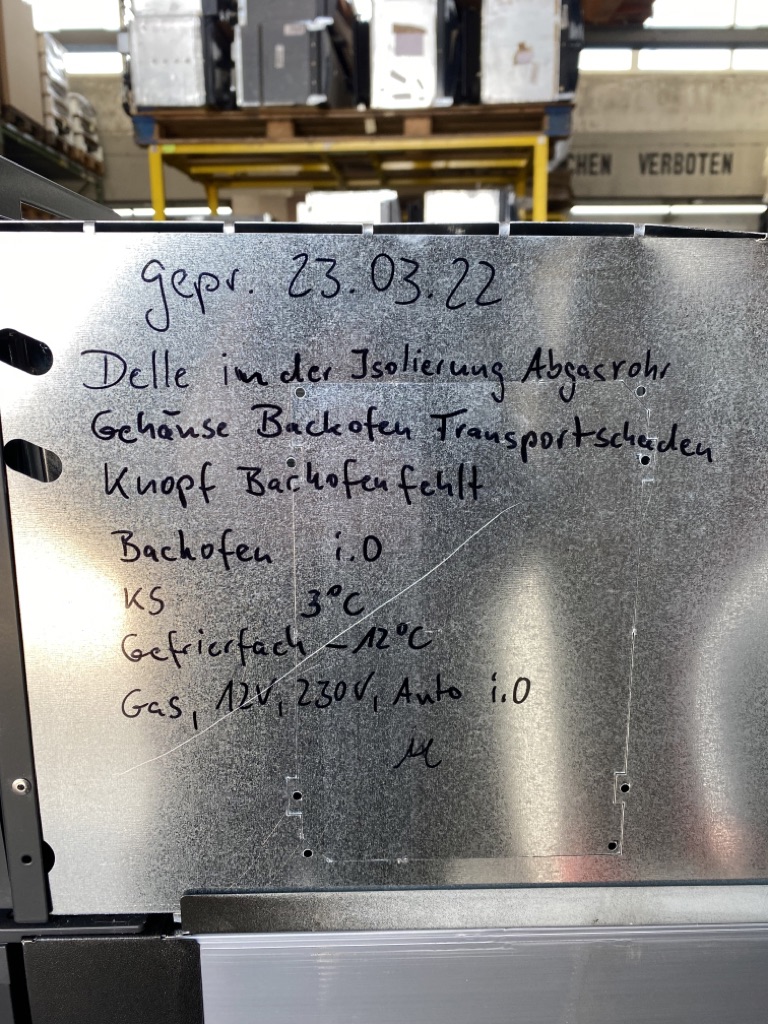 CHEN VERBOTEN
gepr. 23.03.22
Delle in der Isolierung Abgasrohr
Gehäuse Backofen Transportschaden
Knopf Backofen fehlt
Backofen i.O
KS 3°C
Gefrierfach -12°C
Gas, 12V, 230V, Auto i.O